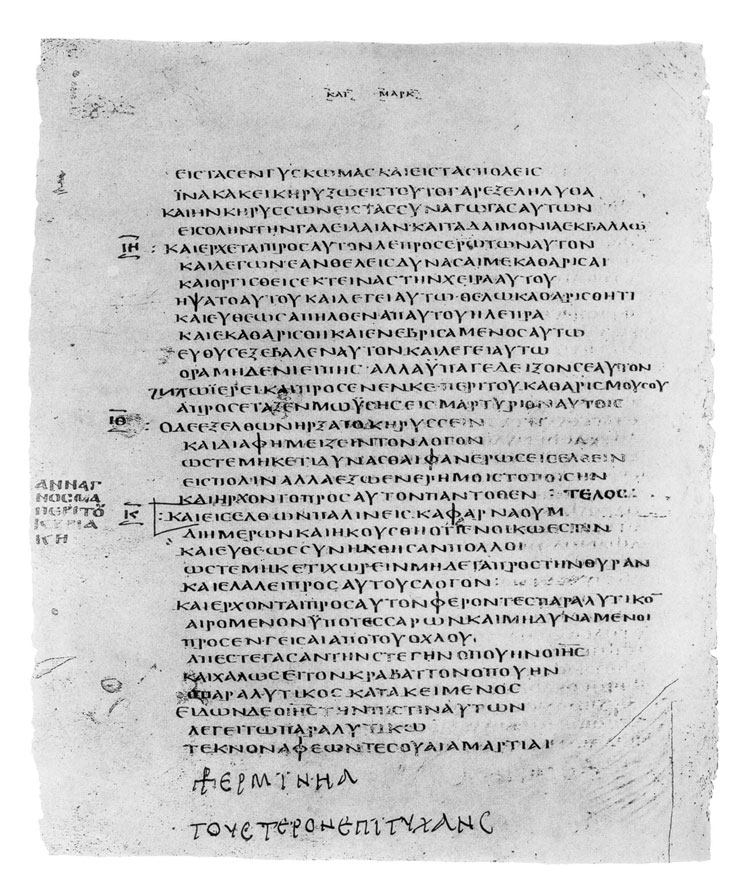 ΚΑΤ ΜΑΡΚ
ΕΙϹΤΑϹΕΝΓΥϹΚΩΜΑϹΚΑΙΕΙϹΤΑϹΠΟΛΕΙϹ
ΪΝΑΚΑΚΕΙΚΗΡΥΞΩΕΙϹΤΟΥΤΟΓΑΡΕΞΕΛΗΛΥΘΑ
ΚΑΙΗΝΚΗΡΥϹϹΩΝΕΙϹΤΑϹϹΥΝΑΓΩΓΑϹΑΥΤΩΝ
ΕΙϹΟΛΗΝΤΗΝΓΑΛΕΙΛΑΙΑΝ·ΚΑΙΤΑΔΑΙΜΟΝΙΑΕΚΒΑΛΛΩ
ΙΗ : ΚΑΙΕΡΧΕΤΑΙΠΡΟϹΑΥΤΟΝΛΕΠΡΟϹΕΡΩΤΩΝΑΥΤΟΝ
ΚΑΙΛΕΓΩΝ·ΕΑΝΘΕΛΕΙϹΔΥΝΑϹΑΙΜΕΚΑΘΑΡΙϹΑΙ
ΚΑΙΟΡΓΙϹΘΕΙϹΕΚΤΕΙΝΑϹΤΗΝΧΕΙΡΑΑΥΤΟΥ
ΗΨΑΤΟΑΥΤΟΥΚΑΙΛΕΓΕΙΑΥΤΩ·ΘΕΛΩΚΑΘΑΡΙϹΘΗΤΙ
ΚΑΙΕΥΘΕΩϹΑΠΗΛΘΕΝΑΠΑΥΤΟΥΗΛΕΠΡΑ
ΚΑΙΕΚΑΘΑΡΙϹΘΗΚΑΙΕΝΕΒΡΙϹΑΜΕΝΟϹΑΥΤΩ
ΕΥΘΥϹΕΞΕΒΑΛΕΝΑΥΤΟΝΚΑΙΛΕΓΕΙΑΥΤΩ
ΟΡΑΜΗΔΕΝΙΕΙΠΗϹ·ΑΛΛΑΥΠΑΓΕΔΕΙΞΟΝϹΕΑΥΤΟΝ
ΤΩΪΕΡΕΙ·ΚΑΙΠΡΟϹΕΝΕΝΚΕ·ΠΕΡΙΤΟΥΚΑΘΑΡΙϹΜΟΥϹΟΥ
ΑΠΡΟϹΕΤΑΞΕΝΜΩΫϹΗϹΕΙϹΜΑΡΤΥΡΙΟΝΑΥΤΟΙϹ
ΙΘ : ΟΔΕΕΞΕΛΘΩΝΗΡΞΑΤΟΚΗΡΥϹϹΕΙΝ
ΚΑΙΔΙΑΦΗΜΕΙΖΕΙΝΤΟΝΛΟΓΟΝ
ΩϹΤΕΜΗΚΕΤΙΔΥΝΑϹΘΑΙΦΑΝΕΡΩϹΕΙϹΕΛΘΕΙΝ
ΕΙϹΠΟΛΙΝΑΛΛΑΕΞΩΕΝΕΡΗΜΟΙϹΤΟΠΟΙϹΗΝ
ΚΑΙΗΡΧΟΝΤΟΠΡΟϹΑΥΤΟΝΠΑΝΤΟΘΕΝ : ΤΕΛΟϹ:
ΑΝΝΑΓ
ΝΟϹΜΑ
ΠΕΡΙΤΟ̅
ΚΥΡΙΑ
ΚΗ
Κ : ΚΑΙΕΙϹΕΛΘΩΝΠΑΛΙΝΕΙϹ·ΚΑΦΑΡΝΑΟΥΜ
ΔΙΗΜΕΡΩΝΚΑΙΗΚΟΥϹΘΗΟΤΙΕΝΟΙΚΩΕϹΤΙΝ
ΚΑΙΕΥΘΕΩϹϹΥΝΗΧΘΗϹΑΝΠΟΛΛΟΙ
ΩϹΤΕΜΗΚΕΤΙΧΩΡΕΙΝΜΗΔΕΤΑΠΡΟϹΤΗΝΘΥΡΑΝ
ΚΑΙΕΛΑΛΕΙΠΡΟϹΑΥΤΟΥϹΛΟΓΟΝ:
ΚΑΙΕΡΧΟΝΤΑΙΠΡΟϹΑΥΤΟΝΦΕΡΟΝΤΕϹΠΑΡΑΛΥΤΙΚΟ̅
ΑΙΡΟΜΕΝΟΝΫΠΟΤΕϹϹΑΡΩΝΚΑΙΜΗΔΥΝΑΜΕΝΟΙ
ΠΡΟϹΕΝΓΕΙϹΑΙΑΠΟΤΟΥΟΧΛΟΥ
ΑΠΕϹΤΕΓΑϹΑΝΤΗΝϹΤΕΓΗΝΟΠΟΥΗΝΟΙΗϹ
ΚΑΙΧΑΛΩϹΕΙΤΟΝΚΡΑΒΑΤΤΟΝΟΠΟΥΗΝ
ΟΠΑΡΑΛΥΤΙΚΟϹ·ΚΑΤΑΚΕΙΜΕΝΟϹ
ΕΙΔΩΝΔΕΟΙΗϹΤΗΝΠΙϹΤΙΝΑΥΤΩΝ
ΛΕΓΕΙΤΩΠΑΡΑΛΥΤΙΚΩ
ΤΕΚΝΟΝΑΦΕΩΝΤΕϹΟΥΑΙΑΜΑΡΤΙΑΙ
ⳁΕΡΜΙΝΗΑ
ΤΟΥϹΤΕΡΟΝΕΠΙΤΥΧΑΝϹ